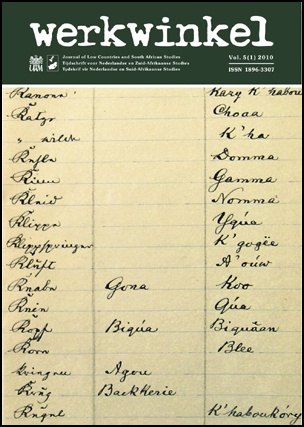 werkwinkel
Journal of Low Countries and South African Studies
Tijdschrift voor Nederlandse en Zuid-Afrikaanse Studies
Tydskrif vir Nederlandse en Suid-Afrikaanse Studies
Vol. 5(1) 2010
ISSN 1896-3307
Kanone Kary K'habou
Choaa
" wilde K'ha
Domma
Gamma
Kleid Nomma
Klippe Ygúa
Klippspringer K'gogïe
Kluft A'oúw
Knabe Gona Koo
Gúa
Kopf Biqúa Biquãan
Korn Blee
Agou
Krug Backkerie
Kugel K'haboukóry